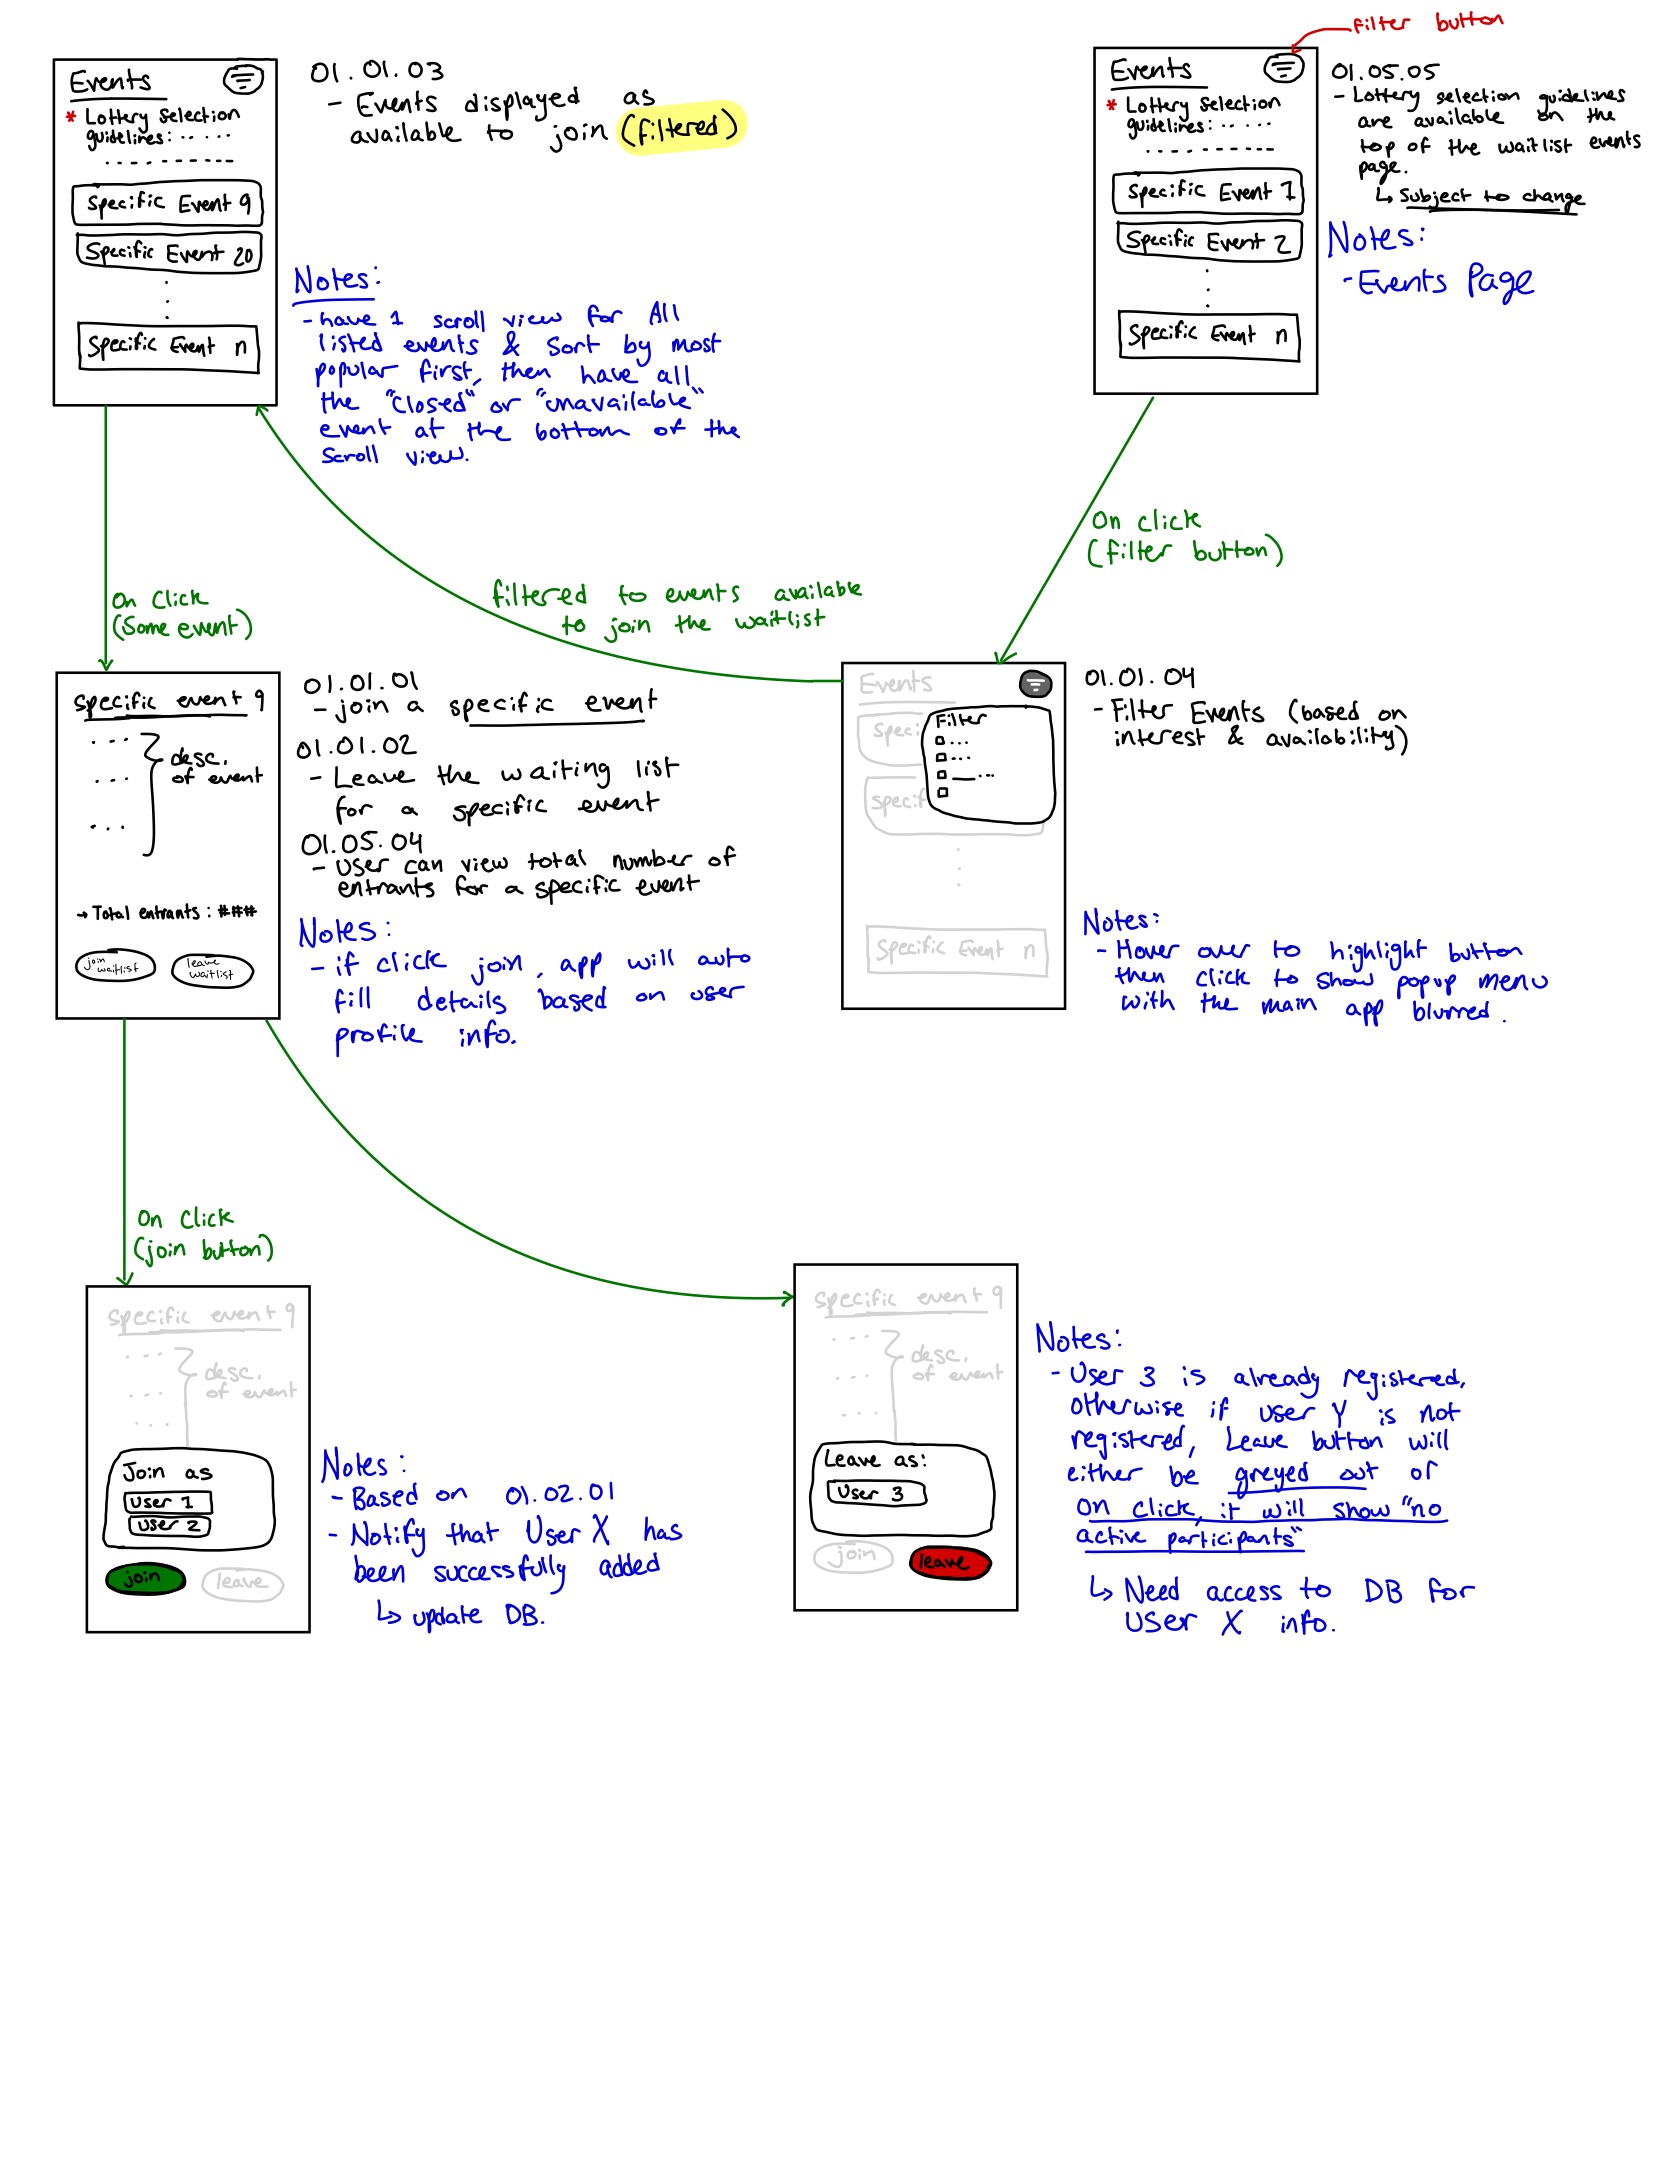 Events
* Lottery Selection
guidelines: ......
Specific Event 9
Specific Event 20
Specific Event n
01.01.03
- Events displayed as
available to join (filtered)
Notes:
- have 1 scroll view for All
listed events & Sort by most
popular first, then have all
the "closed" or "unavailable"
event at the bottom of the
scroll view.
filter button
Events
* Lottery Selection
guidelines: ......
Specific Event 1
Specific Event 2
Specific Event n
01.05.05
- Lottery selection guidelines
are available on the
top of the waitlist events
page.
↳ Subject to change
Notes:
- Events Page
On click
(filter button)
filtered to events available
to join the waitlist
On Click
(Some event)
specific event 9
desc.
of event
→ Total entrants : ###
join
waitlist
leave
waitlist
01.01.01
- join a specific event
01.01.02
- Leave the waiting list
for a specific event
01.05.04
- User can view total number of
entrants for a specific event
Notes:
- if click join, app will auto
fill details based on user
profile info.
Events
Speci
specif
Specific Event n
Filter
01.01.04
- Filter Events (based on
interest & availability)
Notes:
- Hover over to highlight button
then click to show popup menu
with the main app blurred.
On Click
(join button)
specific event 9
desc.
of event
Join as
User 1
User 2
join
leave
Notes:
- Based on 01.02.01
- Notify that User X has
been successfully added
↳ update DB.
specific event 9
desc.
of event
Leave as:
User 3
join
leave
Notes:
- User 3 is already registered,
otherwise if user Y is not
registered, Leave button will
either be greyed out or
on click, it will show "no
active participants"
↳ Need access to DB for
User X info.